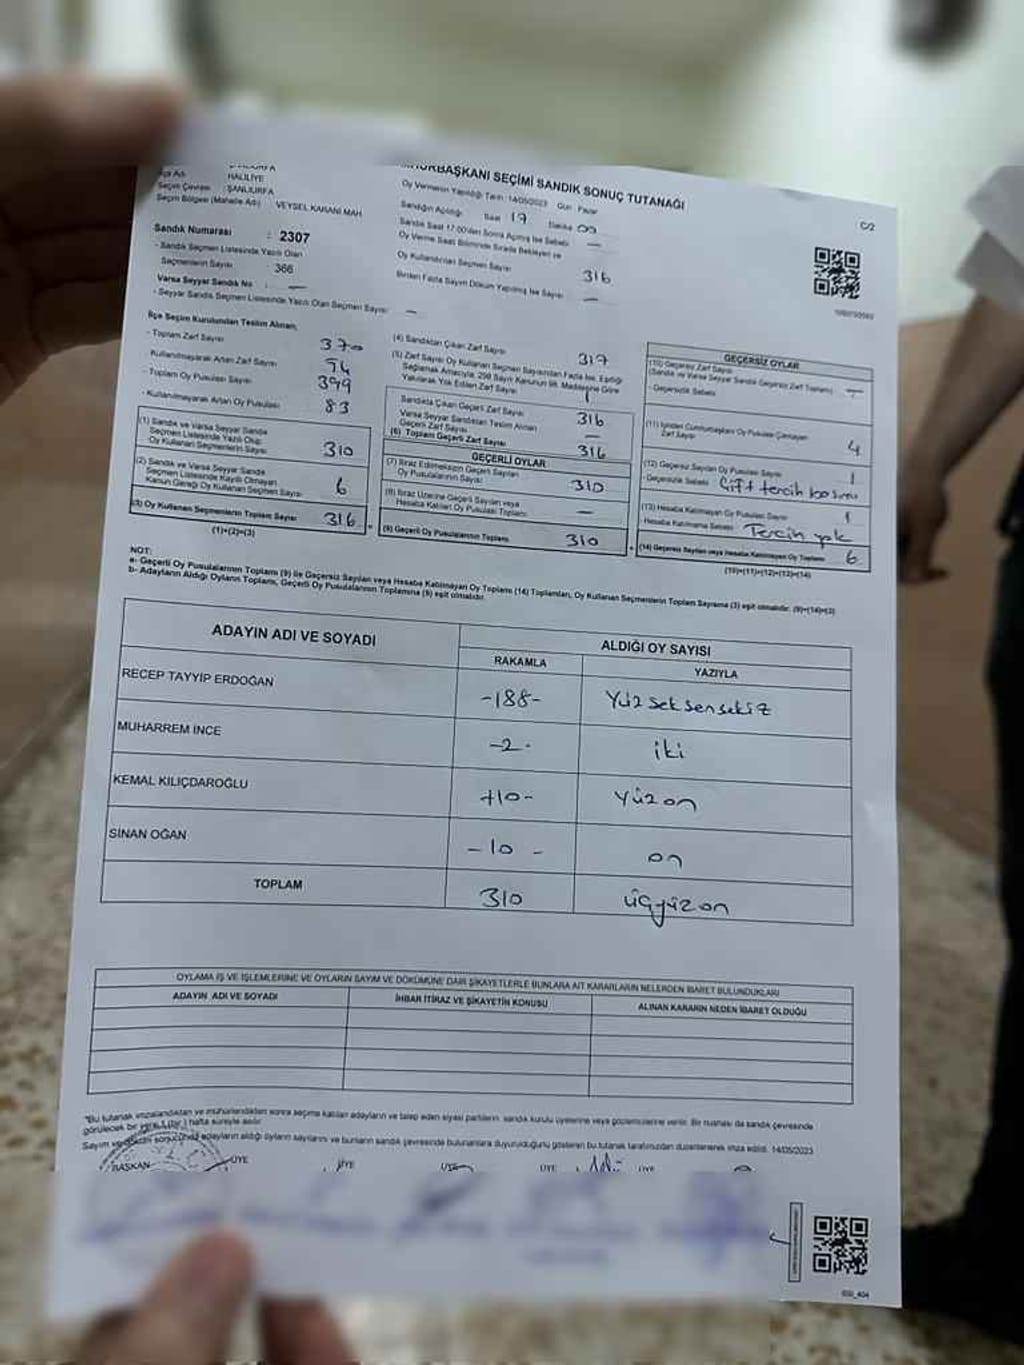 CUMHURBAŞKANI SEÇİMİ SANDIK SONUÇ TUTANAĞI
C/2
İlçe Adı : HALİLİYE
Seçim Çevresi : ŞANLIURFA
Seçim Bölgesi (Mahalle Adı) : VEYSEL KARANİ MAH.
Sandık Numarası : 2307
- Sandık Seçmen Listesinde Yazılı Olan
Seçmenlerin Sayısı : 366
Varsa Seyyar Sandık No : —
- Seyyar Sandık Seçmen Listesinde Yazılı Olan Seçmen Sayısı : —
Oy Vermenin Yapıldığı Tarih: 14/05/2023 Gün: Pazar
Sandığın Açılışı: Saat 17 Dakika 00
Sandık Saat 17:00'den Sonra Açılmış İse Sebebi —
Oy Verme Saati Bitiminde Sırada Bekleyen ve
Oy Kullandırılan Seçmen Sayısı 316
Birden Fazla Sayım Döküm Yapılmış İse Sayısı —
İlçe Seçim Kurulundan Teslim Alınan;
- Toplam Zarf Sayısı 370
- Kullanılmayarak Artan Zarf Sayısı 54
- Toplam Oy Pusulası Sayısı 399
- Kullanılmayarak Artan Oy Pusulası 83
(1) Sandık ve Varsa Seyyar Sandık
Seçmen Listesinde Yazılı Olup
Oy Kullanan Seçmenlerin Sayısı 310
(2) Sandık ve Varsa Seyyar Sandık
Seçmen Listesinde Kayıtlı Olmayan
Kanun Gereği Oy Kullanan Seçmen Sayısı 6
(3) Oy Kullanan Seçmenlerin Toplam Sayısı 316
(1)+(2)=(3)
(4) Sandıktan Çıkan Zarf Sayısı 317
(5) Zarf Sayısı Oy Kullanan Seçmen Sayısından Fazla İse, Eşitliği
Sağlamak Amacıyla; 298 Sayılı Kanunun 98. Maddesine Göre
Yakılarak Yok Edilen Zarf Sayısı 1
Sandıkta Çıkan Geçerli Zarf Sayısı 316
Varsa Seyyar Sandıktan Teslim Alınan
Geçerli Zarf Sayısı —
(6) Toplam Geçerli Zarf Sayısı 316
GEÇERLİ OYLAR
(7) İtiraz Edilmeksizin Geçerli Sayılan
Oy Pusulalarının Sayısı 310
(8) İtiraz Üzerine Geçerli Sayılan veya
Hesaba Katılan Oy Pusulası Toplamı —
(9) Geçerli Oy Pusulalarının Toplamı 310
GEÇERSİZ OYLAR
(10) Geçersiz Zarf Sayısı
(Sandık ve Varsa Seyyar Sandık Geçersiz Zarf Toplamı) —
- Geçersizlik Sebebi :
(11) İçinden Cumhurbaşkanı Oy Pusulası Çıkmayan
Zarf Sayısı 4
(12) Geçersiz Sayılan Oy Pusulası Sayısı 1
- Geçersizlik Sebebi : Çift tercih
(13) Hesaba Katılmayan Oy Pusulası Sayısı 1
Hesaba Katılmama Sebebi : Tercih yok
(14) Geçersiz Sayılan veya Hesaba Katılmayan Oy Toplamı 6
(10)+(11)+(12)+(13)=(14)
NOT:
a- Geçerli Oy Pusulalarının Toplamı (9) ile Geçersiz Sayılan veya Hesaba Katılmayan Oy Toplamı (14) Toplamları, Oy Kullanan Seçmenlerin Toplam Sayısına (3) eşit olmalıdır. (9)+(14)=(3)
b- Adayların Aldığı Oyların Toplamı, Geçerli Oy Pusulalarının Toplamına (9) eşit olmalıdır.
ADAYIN ADI VE SOYADI ALDIĞI OY SAYISI
RAKAMLA YAZIYLA
RECEP TAYYİP ERDOĞAN -188- Yüzseksensekiz
MUHARREM İNCE -2- iki
KEMAL KILIÇDAROĞLU 110- Yüzon
SİNAN OĞAN -10- on
TOPLAM 310 üçyüzon
OYLAMA İŞ VE İŞLEMLERİNE VE OYLARIN SAYIM VE DÖKÜMÜNE DAİR ŞİKAYETLERLE BUNLARA AİT KARARLARIN NELERDEN İBARET BULUNDUKLARI
ADAYIN ADI VE SOYADI İHBAR İTİRAZ VE ŞİKAYETİN KONUSU ALINAN KARARIN NEDEN İBARET OLDUĞU
*Bu tutanak imzalandıktan ve mühürlendikten sonra seçime katılan adayların ve talep eden siyasi partilerin sandık kurulu üyelerine veya gözlemcilerine verilir. Bir nüshası da sandık çevresinde
görülecek bir yere 1 (bir) hafta süreyle asılır.
Sayım ve döküm sonucunda adayların aldığı oyların sayılarını ve bunların sandık çevresinde bulunanlara duyurulduğunu gösteren bu tutanak tarafımızdan düzenlenerek imza edildi. 14/05/2023
BAŞKAN ÜYE ÜYE ÜYE ÜYE ÜYE